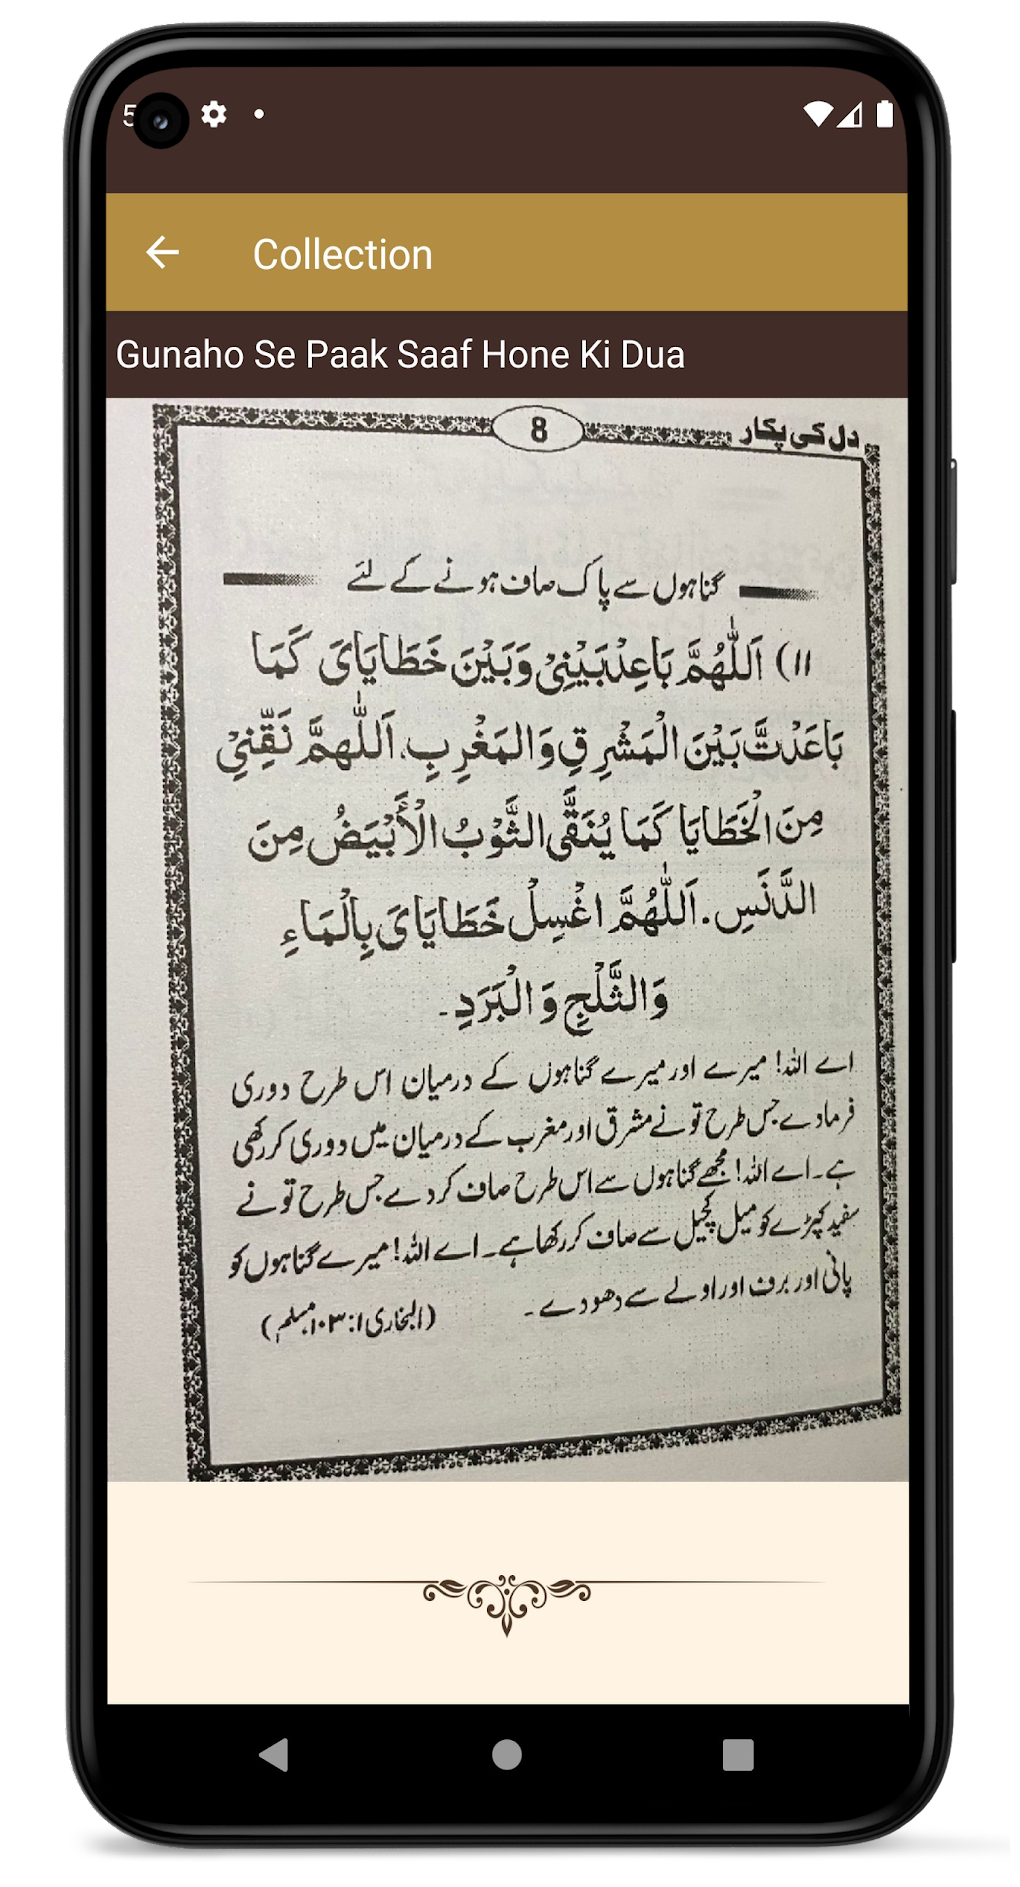 5
Collection
Gunaho Se Paak Saaf Hone Ki Dua
دل کی پکار
8
گناہوں سے پاک صاف ہونے کے لئے
۱۱) اَللّٰهُمَّ بَاعِدْ بَيْنِيْ وَبَيْنَ خَطَايَاىَ كَمَا
بَاعَدْتَّ بَيْنَ الْمَشْرِقِ وَالْمَغْرِبِ. اَللّٰهمَّ نَقِّنِيْ
مِنَ الْخَطَايَا كَمَا يُنَقَّى الثَّوْبُ الْأَبْيَضُ مِنَ
الدَّنَسِ. اَللّٰهُمَّ اغْسِلْ خَطَايَاىَ بِالْمَاءِ
وَالثَّلْجِ وَالْبَرَدِ۔
اے اللہ! میرے اور میرے گناہوں کے درمیان اس طرح دوری
فرمادے جس طرح تو نے مشرق اور مغرب کے درمیان میں دوری کر رکھی
ہے۔ اے اللہ! مجھے گناہوں سے اس طرح صاف کر دے جس طرح تو نے
سفید کپڑے کو میل کچیل سے صاف کر رکھا ہے۔ اے اللہ! میرے گناہوں کو
پانی اور برف اور اولے سے دھو دے۔
(البخاری ۱:۱۰۳، مسلم)